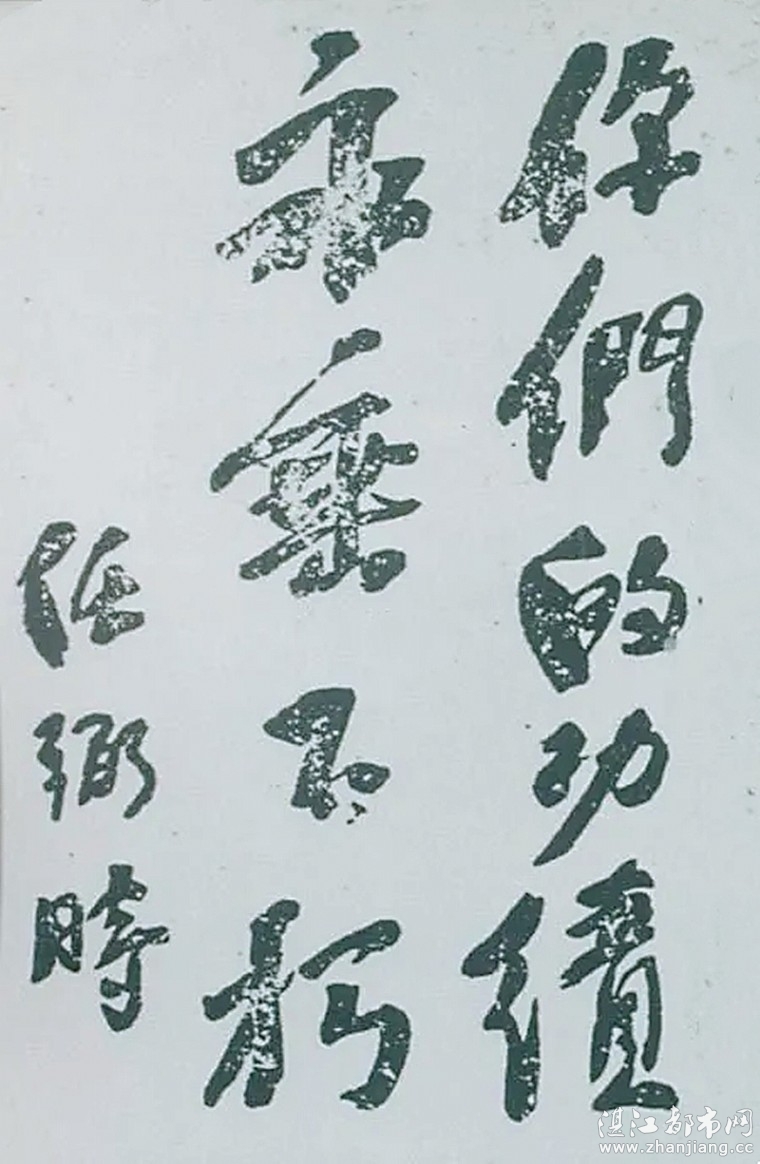 你們的功績
永垂不朽
任弼時
湛江都市网
www.zhanjiang.cc